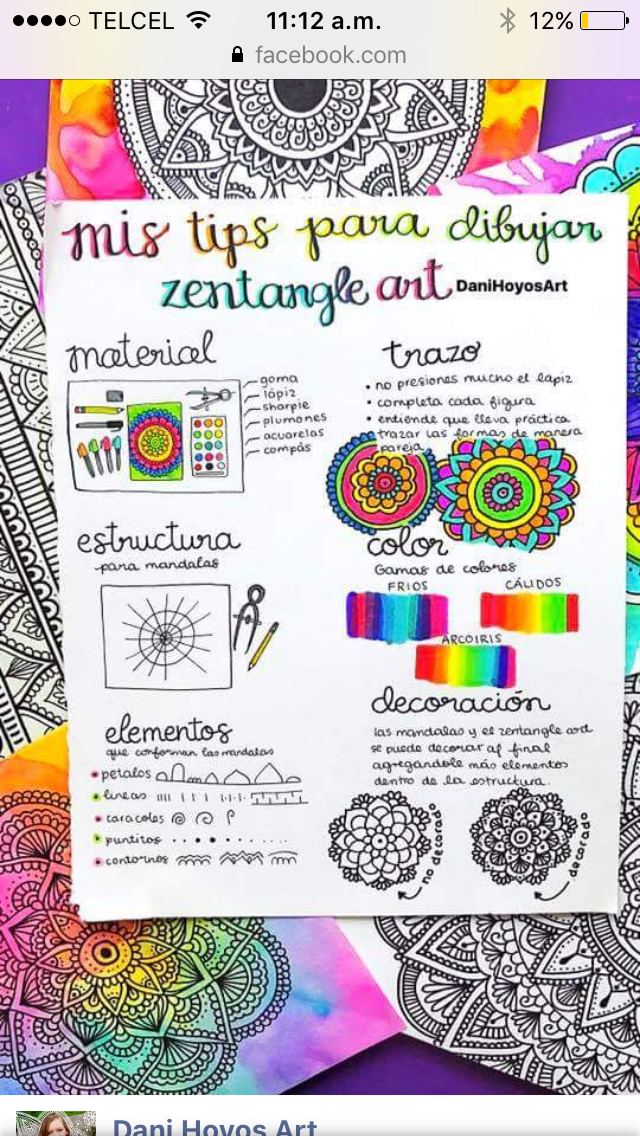 TELCEL 11:12 a.m. 12%
facebook.com
mis tips para dibujar
zentangle art DaniHoyosArt
material
goma
lápiz
sharpie
plumones
acuarelas
compás
trazo
• no presiones mucho el lapiz
• completa cada figura
• entiende que lleva práctica
trazar las formas de manera
pareja.
estructura
para mandalas
color
Gamas de colores
FRIOS CÁLIDOS
ARCOIRIS
elementos
que conforman las mandalas
• petalos
• lineas
• caracoles
• puntitos
• contornos
decoración
las mandalas y el zentangle art
se puede decorar al final
agregandole más elementos
dentro de la estructura.
no decorado
decorado
Dani Hoyos Art